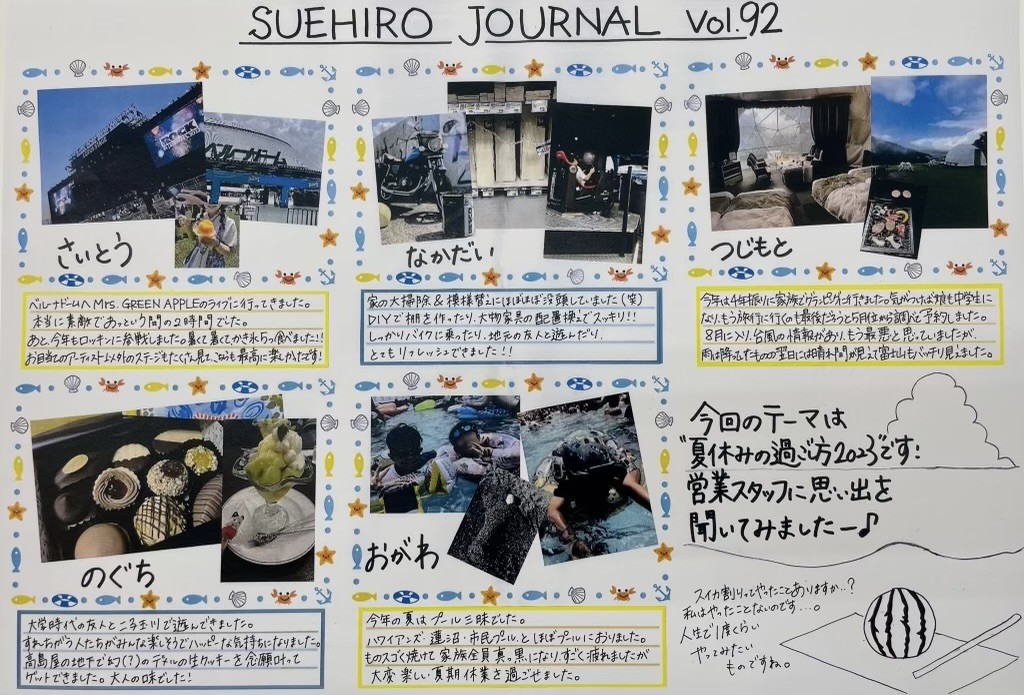 SUEHIRO JOURNAL Vol.92
ベルーナドーム
さいとう
ベルーナドームへMrs. GREEN APPLEのライブに行ってきました。
本当に素敵であっという間の2時間でした。
あと、今年もロッキンに参戦しました。暑くて暑くてかき氷も食べました!!
お目当てのアーティスト以外のステージもたくさん見て、こちらも最高に楽しかったです!
なかだい
家の大掃除&模様替えにほぼほぼ没頭していました(笑)
DIYで棚を作ったり、大物家具の配置換えでスッキリ!!
しっかりバイクに乗ったり、地元の友人と遊んだり、
とてもリフレッシュできました!!
つじもと
今年は4年振りに家族でグランピングに行きました。気がつけば娘も中学生に
なり、もう旅行に行くのも最後だろうと5月位から調べて予約しました。
8月に入り、台風の情報があり、もう最悪と思っていましたが、
雨は降ってたものの翌日には晴れ間が見えて富士山もバッチリ見えました。
のぐち
大学時代の友人と二子玉川で遊んできました。
すれちがう人たちがみんな楽しそうでハッピーな気持ちになりました。
高島屋の地下で幻(?)の
の生クッキーを念願叶って
ゲットできました。大人の味でした!
おがわ
今年の夏はプール三昧でした。
ハワイアンズ、蓮沼、市民プール、とほぼプールにおりました。
ものスゴく焼けて家族全員真っ黒になり、すごく疲れましたが
大変楽しい夏期休業を過ごせました。
今回のテーマは
"夏休みの過ごし方2023"です!
営業スタッフに思い出を
聞いてみましたー♪
スイカ割りってやったことありますか…?
私はやったことないのです…。
人生で1度くらい
やってみたい
ものですね。